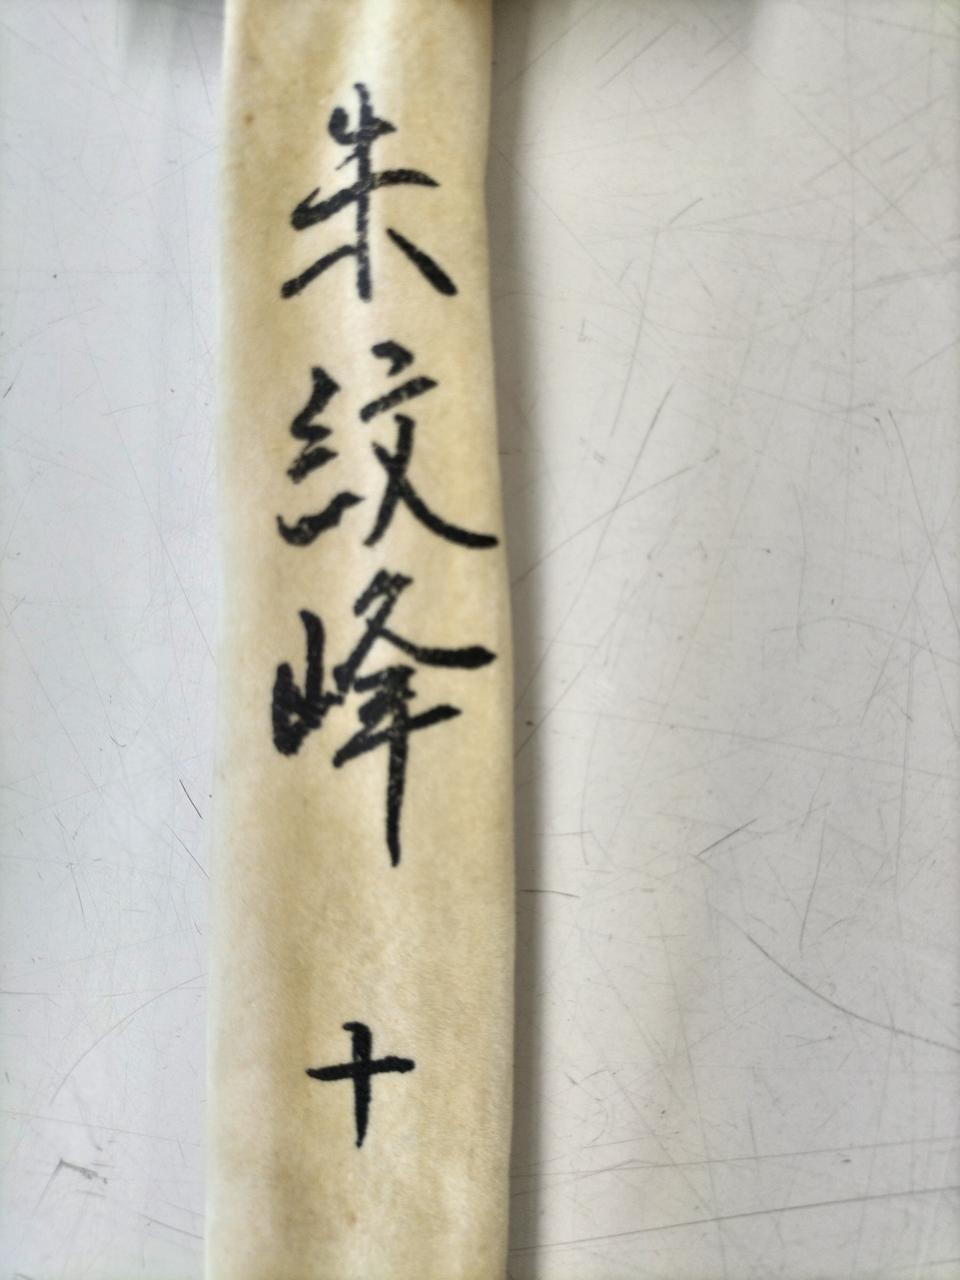 朱紋峰
十